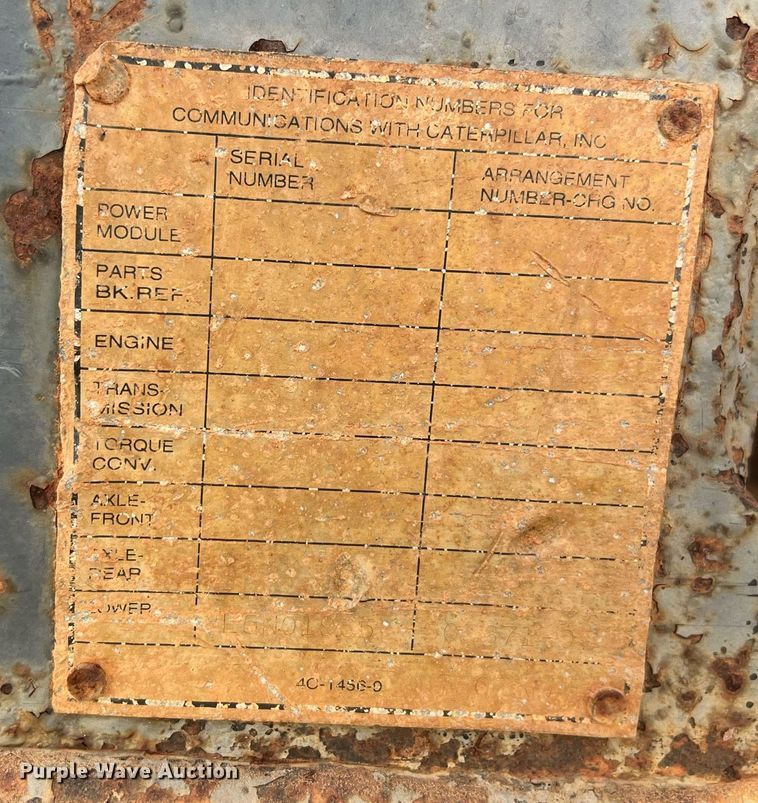 IDENTIFICATION NUMBERS FOR
COMMUNICATIONS WITH CATERPILLAR, INC
SERIAL
NUMBER
ARRANGEMENT
NUMBER-CHG NO.
POWER
MODULE
PARTS
BK.REF.
ENGINE
TRANS-
MISSION
TORQUE
CONV.
AXLE-
FRONT
AXLE-
REAR
Purple Wave Auction